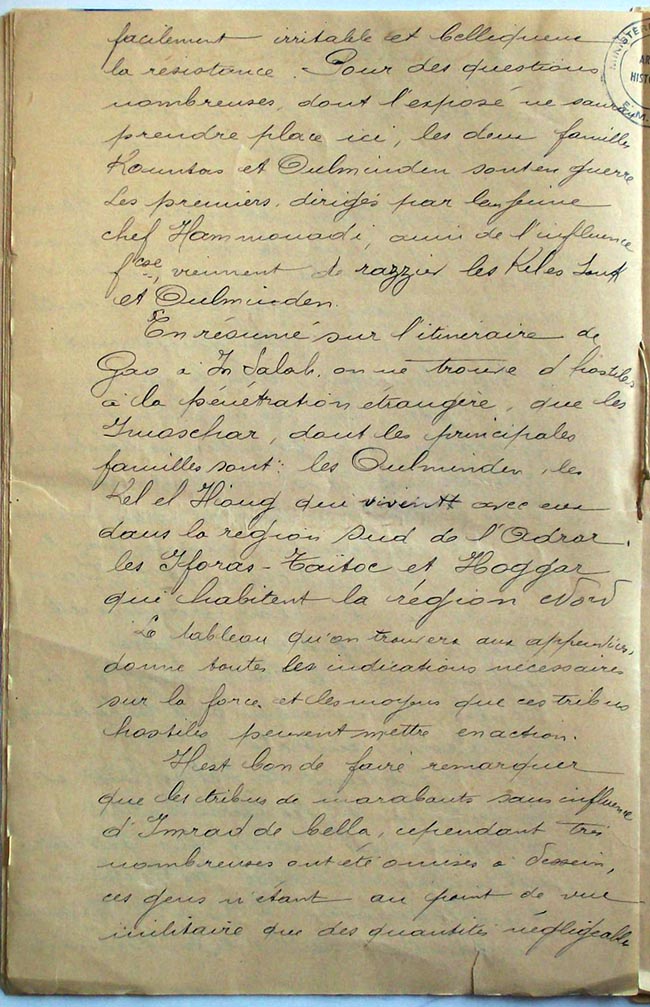 facilement irritable et belliqueux
la résistance. Pour des questions
nombreuses, dont l'exposé ne saurait
prendre place ici, les deux familles
Kountas et Oulminden sont en guerre
Les premiers, dirigés par leur jeune
chef Hammouadi, ami de l'influence
fcse, viennent de razzier les Kel es Souk
et Oulminden.
En résumé sur l'itinéraire de
Gao à In Salah, on ne trouve d'hostiles
à la pénétration étrangère, que les
Imoschar, dont les principales
familles sont: les Oulminden, les
Kel el Hioug qui vivent avec eux
dans la région sud de l'Adrar,
les Iforas-Taïtoc et Hoggar
qui habitent la région Nord
Le tableau qu'on trouvera aux appendices,
donne toutes les indications nécessaires
sur la force et les moyens que ces tribus
hostiles peuvent mettre en action.
Il est bon de faire remarquer
que les tribus de marabouts sans influence
d'Imrad de bella, cependant très
nombreuses ont été omises à dessein,
ces gens n'étant au point de vue
militaire que des quantités négligeables
MINISTERE
AR
HISTO
E.M.